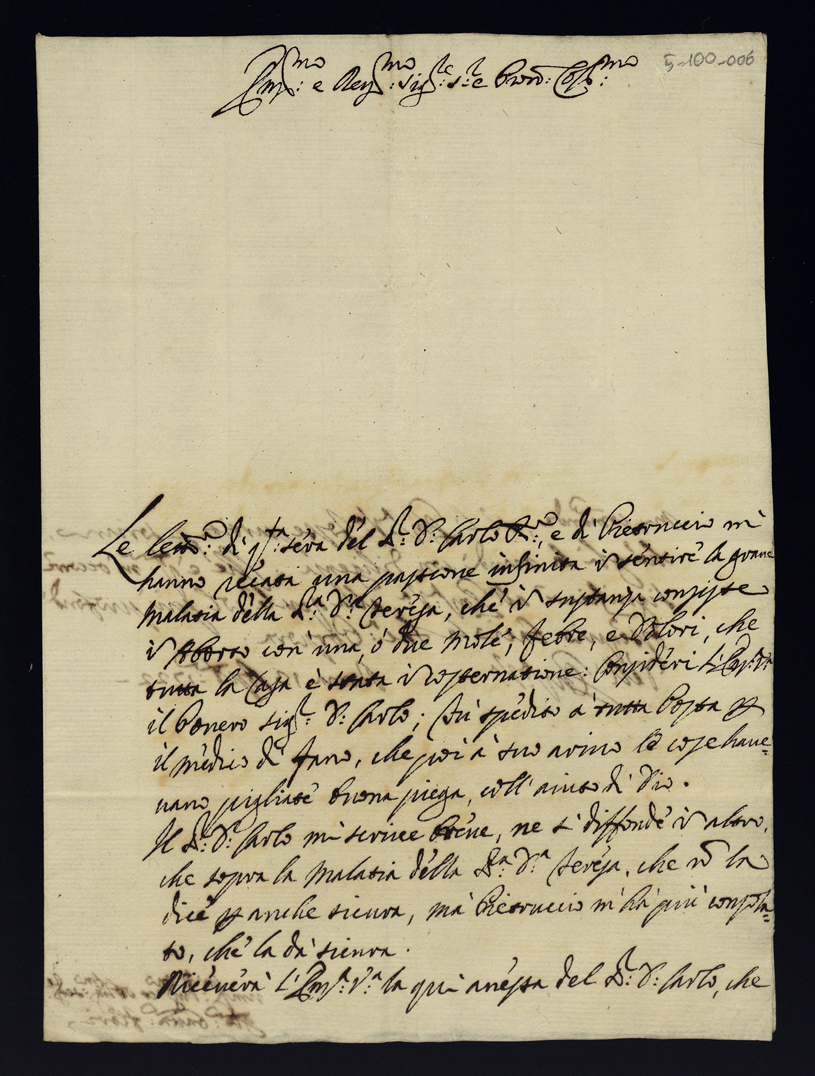 5-100-006
Em.mo e Rev.mo Sig.re S.r e Pron: Col.mo
Le lett.e di q.ta sera del S.r D. Carlo e di Pietruccio mi
hanno recata una passione infinita in sentire la grave
malatia della S.ra D.a Teresa, che in sustanza consiste
in Aborto con una, ò due mole, febre, e dolori, che
tutta la Casa è in costernatione: Consideri L'Em.a V.a
il Povero Sig.r D. Carlo; fù spedito à tutta Posta p
il medico di Fano, che poi à suo arivo le cose have=
vano pigliate buona piega, coll'aiuto di Dio.
Il S.r D. Carlo mi scrive breve, ne si diffonde in altro,
che sopra la malatia della S.ra D.a Teresa, che nõ la
dice p anche sicura, mà Pietruccio m'hà più consola=
to, che la dà sicura.
Riceverà L'Em.a V.a la qui anessa del S.r D. Carlo, che